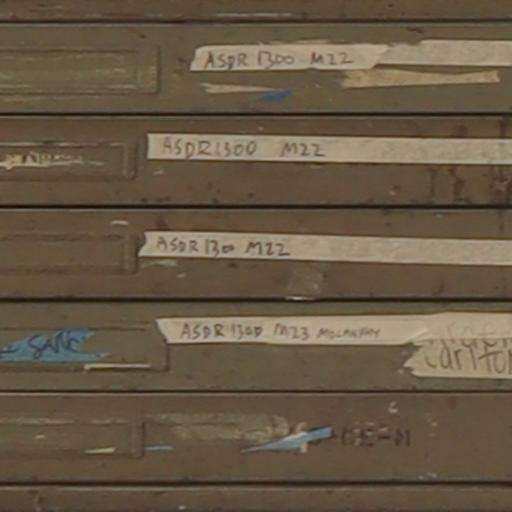 ASDR 1300 M22
ASDR1300 M22
ASDR 1300 M22
ASDR 1300 M23 MOLANPHY
SANC
Carlton